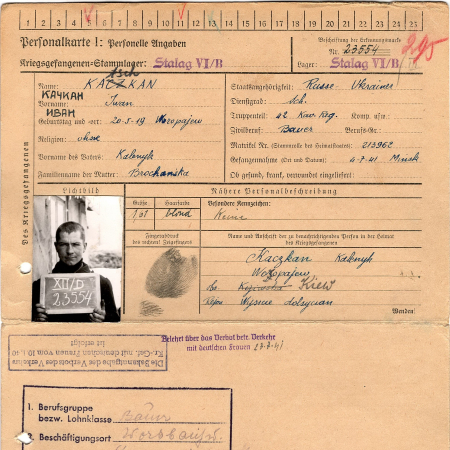 1 2 3 4 5 6 7 8 9 10 11 12 13 14 15 16 17 18 19 20 21 22 23 24 25
Personalkarte I: Personelle Angaben
Beschriftung der Erkennungsmarke
Nr. 23554
Kriegsgefangenen-Stammlager: Stalag VI/B
Lager: Stalag VI/B
Des Kriegsgefangenen
Name: KACZKAN
КАЧКАН
Vorname: Iwan
ИВАН
Geburtstag und -ort: 20.5.19 Woropajew
Religion: ohne
Vorname des Vaters: Kalenyk
Familienname der Mutter: Brochanska
Staatsangehörigkeit: Russe - Ukrainer
Dienstgrad: Sch.
Truppenteil: 42 Kav. Reg. Komp. usw.:
Zivilberuf: Bauer Berufs-Gr.:
Matrikel Nr. (Stammrolle des Heimatstaates): 213962
Gefangennahme (Ort und Datum): 4.7.41 Minsk
Ob gesund, krank, verwundet eingeliefert:
Lichtbild
XII/D
23554
Nähere Personalbeschreibung
Größe
Haarfarbe
Besondere Kennzeichen:
blond
Keine
Fingerabdruck
des rechten! Zeigefingers
Name und Anschrift der zu benachrichtigenden Person in der Heimat
des Kriegsgefangenen
Kaczkan Kalenyk
Woropajew
Kiew
Wysune
Wenden!
Belehrt über das Verbot betr. Verkehr
mit deutschen Frauen
Die Bekanntgabe des Verbotes des Verkehrs
Kr.-Gef. mit deutschen Frauen vom 10.1.40
ist erfolgt
1. Berufsgruppe
bezw. Lohnklasse Bauer
2. Beschäftigungsort